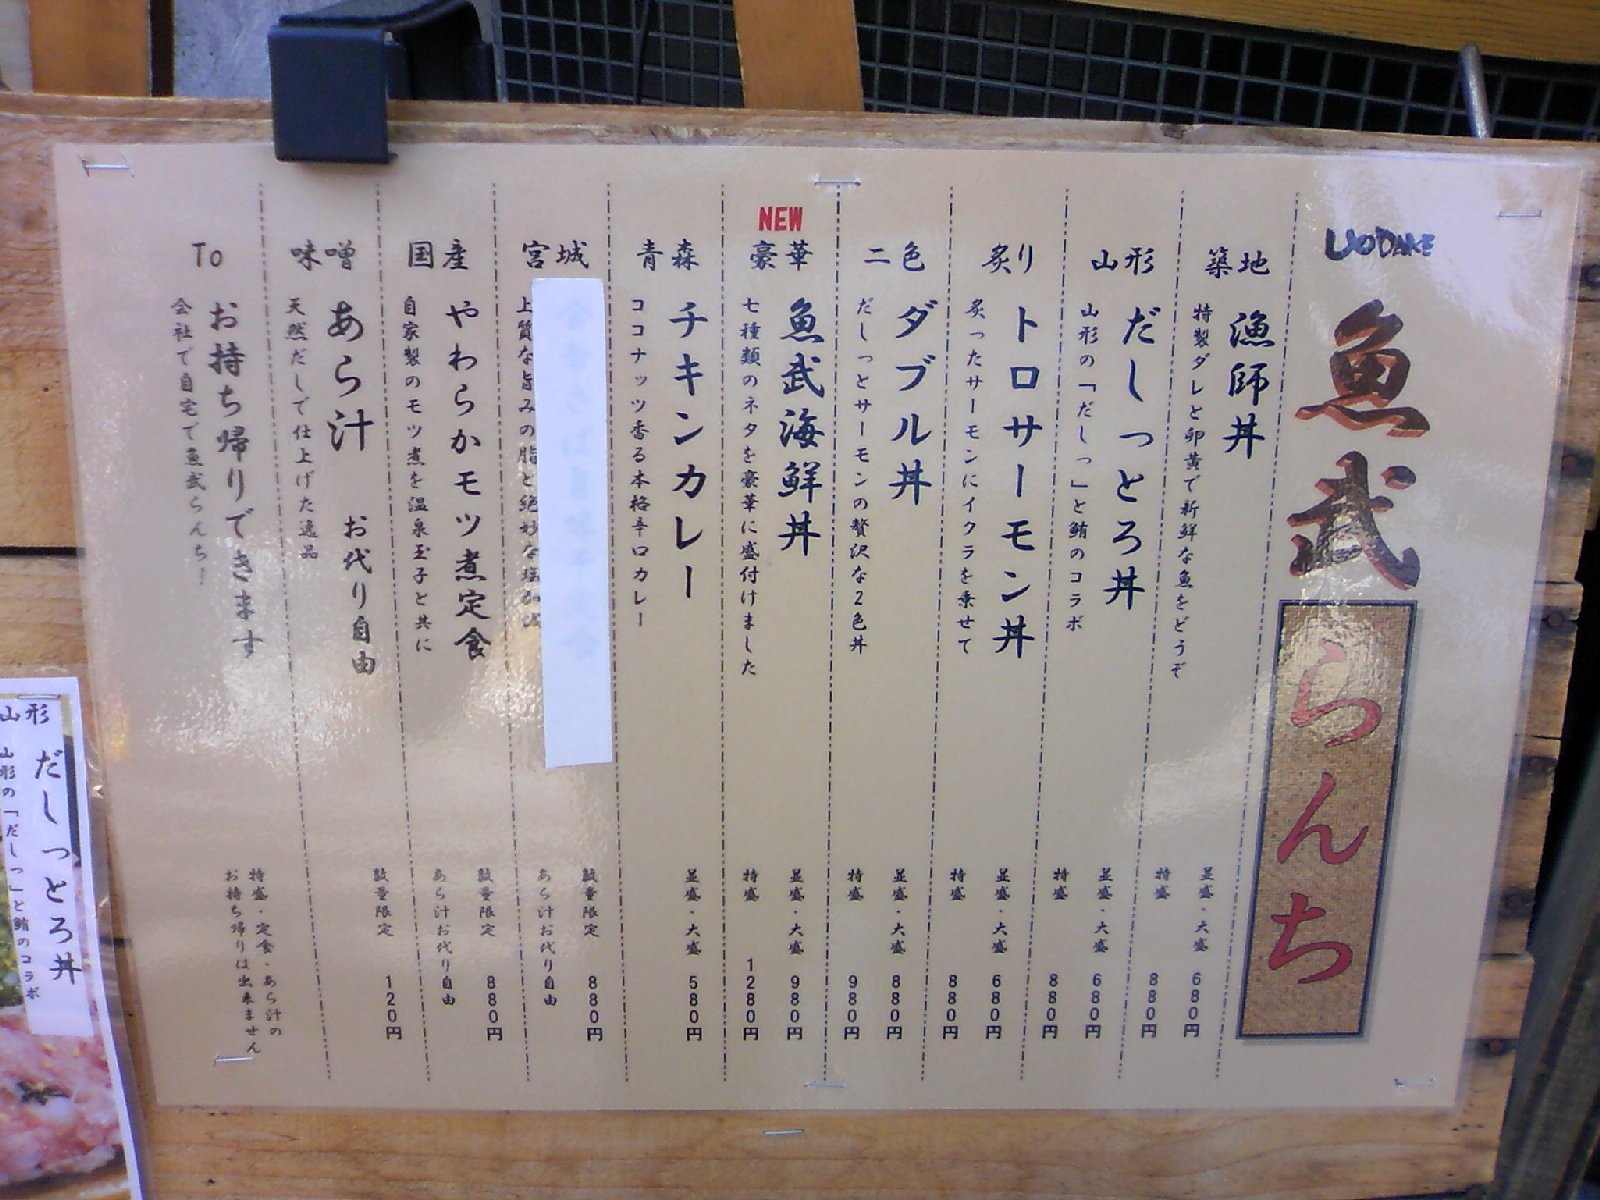 UODAKE
魚武
らんち
築地
漁師丼
特製ダレと卵黄で新鮮な魚をどうぞ
並盛・大盛 680円
特盛 880円
山形
だしっとろ丼
山形の「だしっ」と鮪のコラボ
並盛・大盛 680円
特盛 880円
炙り
トロサーモン丼
炙ったサーモンにイクラを乗せて
並盛・大盛 680円
特盛 880円
二色
ダブル丼
だしっとサーモンの贅沢な2色丼
並盛・大盛 880円
特盛 980円
NEW
豪華
魚武海鮮丼
七種類のネタを豪華に盛付けました
並盛・大盛 980円
特盛 1280円
青森
チキンカレー
ココナッツ香る本格辛口カレー
並盛・大盛 580円
宮城
上質な旨みの脂と絶妙な塩
数量限定 880円
あら汁お代り自由
国産
やわらかモツ煮定食
自家製のモツ煮を温泉玉子と共に
数量限定 880円
あら汁お代り自由
味噌
あら汁 お代り自由
天然だしで仕上げた逸品
数量限定 120円
To
お持ち帰りできます
会社で自宅で魚武らんち!
特盛・定食・あら汁の
お持ち帰りは出来ません
山形
だしっとろ丼
山形の「だしっ」と鮪のコラボ